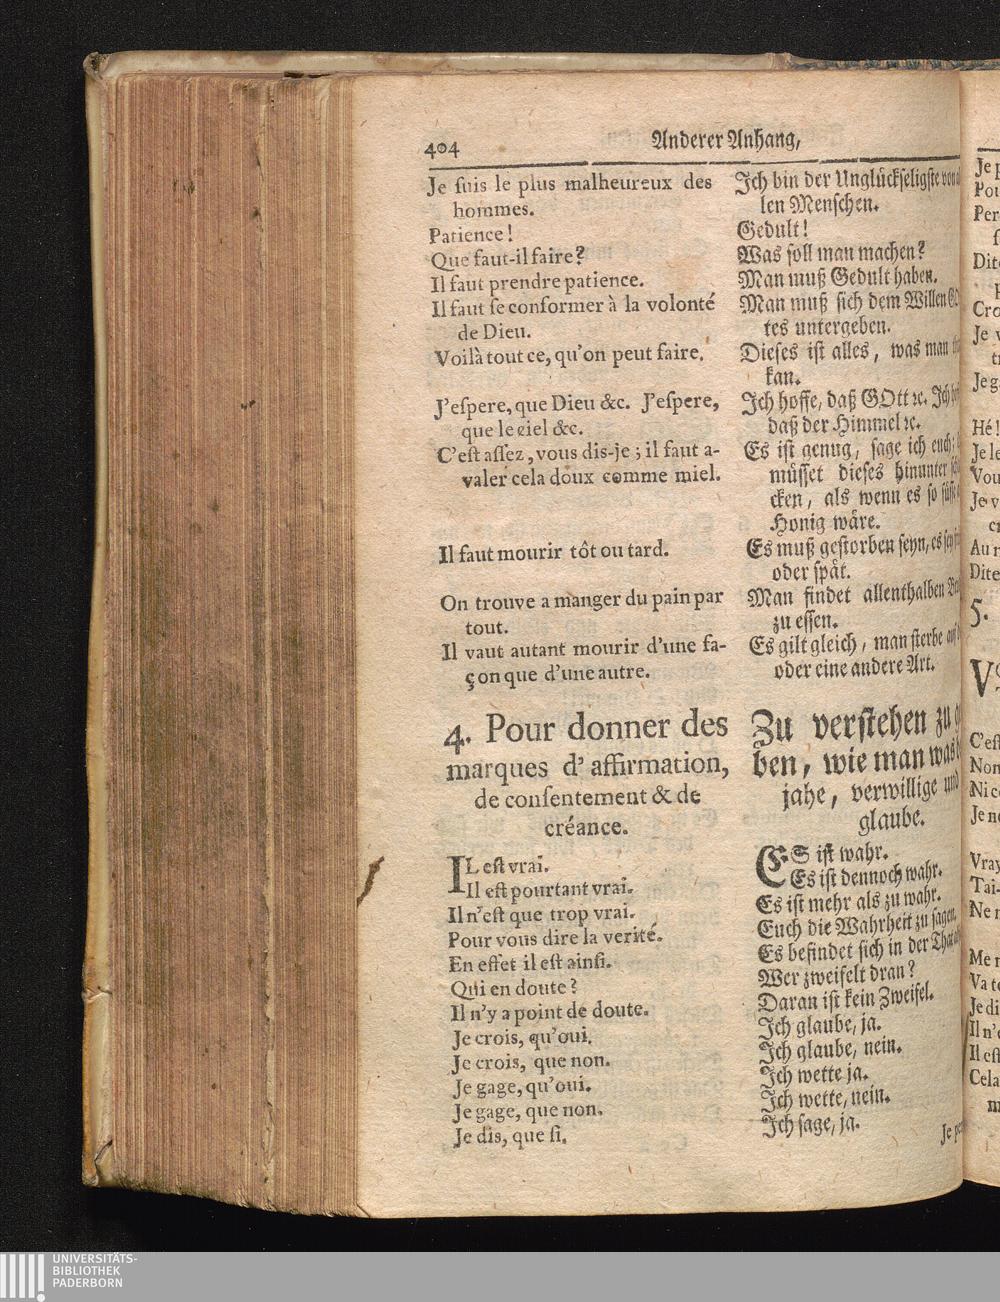 404
Anderer Anhang,
Je ſuis le plus malheureux des
hommes.
Patience!
Que faut-il faire?
Il faut prendre patience.
Il faut ſe conformer à la volonté
de Dieu.
Voilà tout ce, qu'on peut faire.
J'eſpere, que Dieu &c. J'eſpere,
que le ciel &c.
C'eſt aſſez, vous dis-je; il faut a-
valer cela doux comme miel.
Il faut mourir tôt ou tard.
On trouve a manger du pain par
tout.
Il vaut autant mourir d'une fa-
çon que d'une autre.
4. Pour donner des
marques d'affirmation,
de conſentement & de
créance.
IL eſt vrai.
Il eſt pourtant vrai.
Il n'eſt que trop vrai.
Pour vous dire la verité.
En effet il eſt ainſi.
Qui en doute?
Il n'y a point de doute.
Je crois, qu'oui.
Je crois, que non.
Je gage, qu'oui.
Je gage, que non.
Je dis, que ſi.
Ich bin der Unglückſeligſte von
len Menſchen.
Gedult!
Was ſoll man machen?
Man muß Gedult haben.
Man muß ſich dem Willen
tes untergeben.
Dieſes iſt alles, was man
kan.
Ich hoffe, daß GOtt ꝛc. Ich
daß der Himmel ꝛc.
Es iſt genug, ſage ich euch;
müſſet dieſes hinunter
cken, als wenn es ſo
Honig wäre.
Es muß geſtorben ſeyn, es
oder ſpät.
Man findet allenthalben
zu eſſen.
Es gilt gleich, man ſterbe
oder eine andere Art.
Zu verſtehen zu
ben, wie man was
jahe, verwillige und
glaube.
ES iſt wahr.
Es iſt dennoch wahr.
Es iſt mehr als zu wahr.
Euch die Wahrheit zu ſagen.
Es befindet ſich in der
Wer zweifelt dran?
Daran iſt kein Zweifel.
Ich glaube, ja.
Ich glaube, nein.
Ich wette ja.
Ich wette, nein.
Ich ſage, ja.
Je
5.
Hé!
UNIVERSITÄTS-
BIBLIOTHEK
PADERBORN